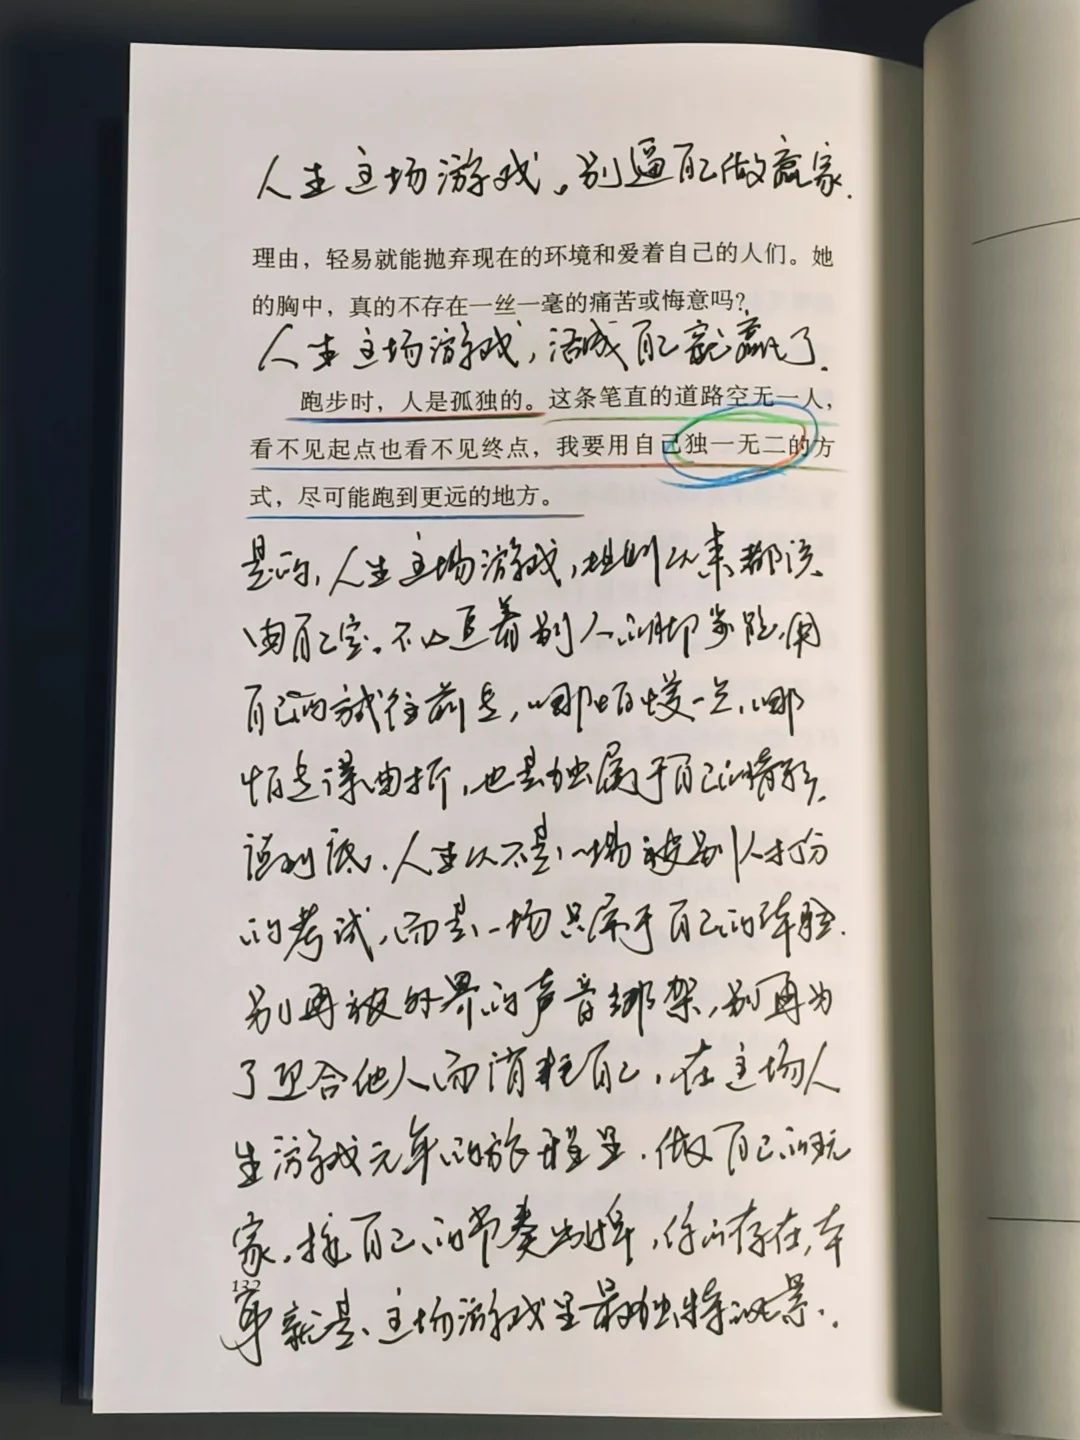 人生这场游戏，别逼自己做赢家.
理由，轻易就能抛弃现在的环境和爱着自己的人们。她
的胸中，真的不存在一丝一毫的痛苦或悔意吗？
人生这场游戏，活成自己就赢了.
跑步时，人是孤独的。这条笔直的道路空无一人，
看不见起点也看不见终点，我要用自己独一无二的方
式，尽可能跑到更远的地方。
是的，人生这场游戏，规则从来都该
由自己定。不必追着别人的脚步跑，用
自己的方式往前走，哪怕慢一点，哪
怕走得曲折，也是独属于自己的精彩.
说到底，人生从不是一场被别人打分
的考试，而是一场只属于自己的体验.
别再被外界的声音绑架，别再为
了迎合他人而消耗自己，在这场人
生游戏的旅程里，做自己的玩
家，按自己的节奏出牌，你的存在，本
132
身就是这场游戏里最独特的风景.